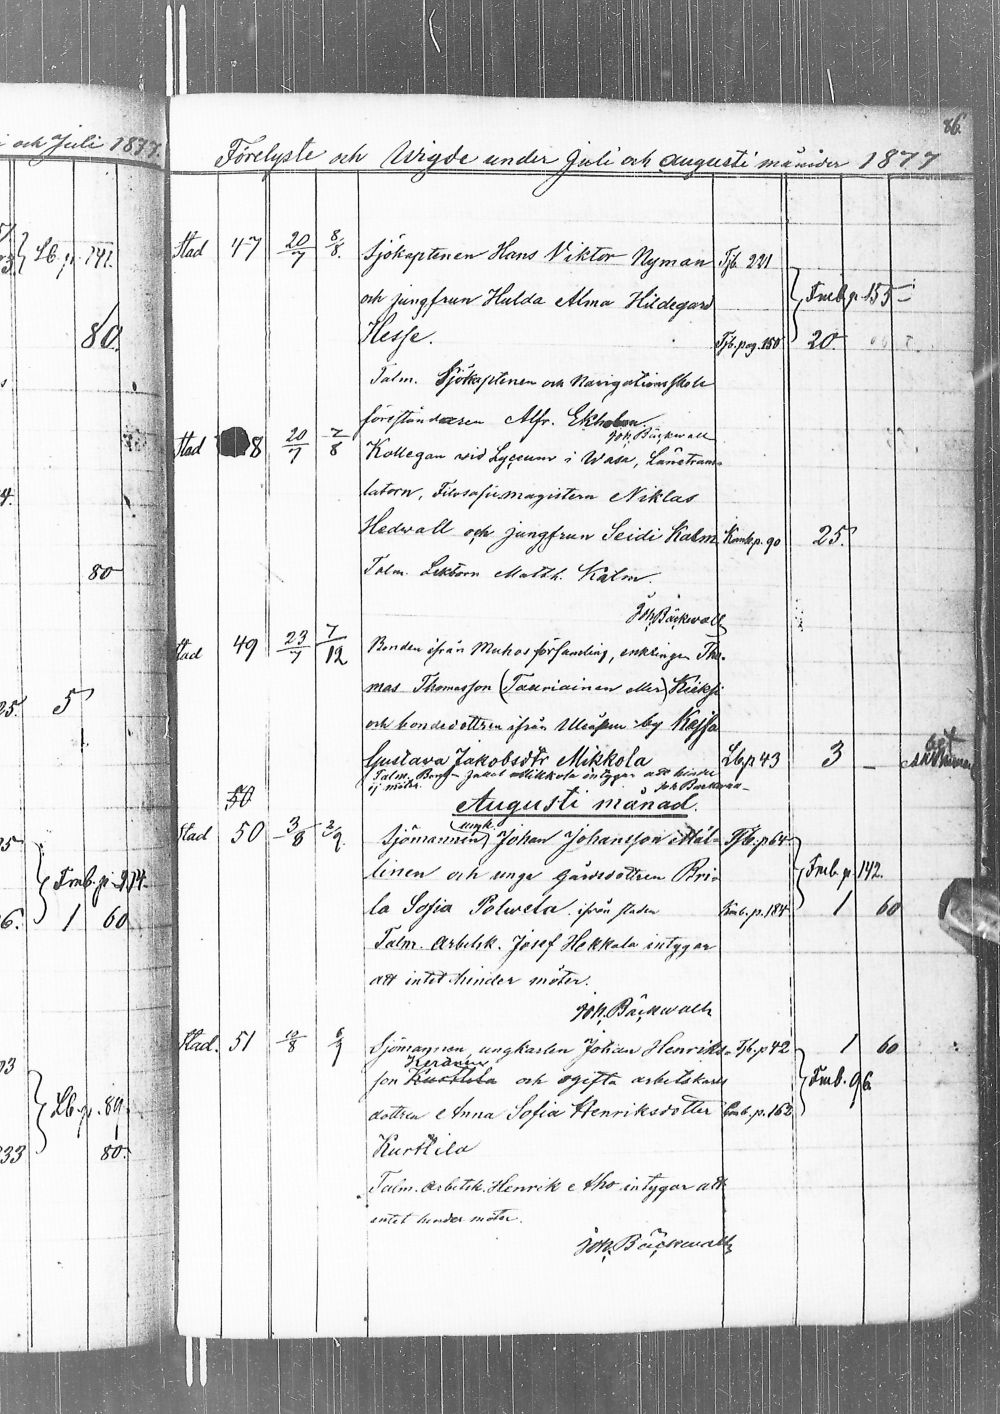 i och Juli 1877.
86.
Förelyste och Wigde under Juli och augusti månader 1877
Lb. p. 141.
80.
80
5
Fmb. p. 274.
1 60
Lb. p. 89
80.
Stad 47 20/7 8/8. Sjökaptenen Hans Viktor Nyman Tjb. 221
och jungfrun Hulda Alma Hildegard Fmb. p. 155
Hesse. Tjb. pag. 150 20.
Talm. Sjökaptenen och Navigationsskole
föreståndaren Alfr. Ekholm.
Joh. Bäckwall
Stad 8 20/7 7/8 Kollegan vid Lyceum i Wasa, Länetrans-
latorn, Filosofiemagistern Niklas
Hedwall och jungfrun Seidi Kalm Komb. p. 90 25.
Talm. Lektorn Matth. Kalm.
Joh. Bäckwall
Stad 49 23/7 7/12 Bonden ifrån Muhos församling, enklingen Tho-
mas Thomasson (Tauriainen eller) Kiiksi
och bondedottren ifrån Uleåsuu by Kajsa
Gustava Jakobsdtr Mikkola Lb. p 43 3 —
Talm. Bond. Jakob Mikkola intygar att hinder
ej möter. Joh Backwall
50
Augusti månad.
Stad 50 3/8 2/9. Sjömannen ungk. Johan Johansson Mäl- Tjb. p 64
linen och unga gårdsdottren Bri- Fmb. p. 142.
ta Sofia Polwela ifrån staden Komb. p. 184 1 60
Talm. arbetsk. Josef Hekkala intygar
att intet hinder möter.
Joh. Bäckwall
Stad. 51 10/8 6/9 Sjömannen, ungkarlen Johan Henriks- Tjb. p 42 1 60
son Keränen Kurttila och ogifta arbetskarls Fmb. 96.
dottren Anna Sofia Henriksdotter Komb. p. 162
Kurttila
Talm. arbetsk. Henrik Aho intygar att
intet hinder möter.
Joh. Bäckwall